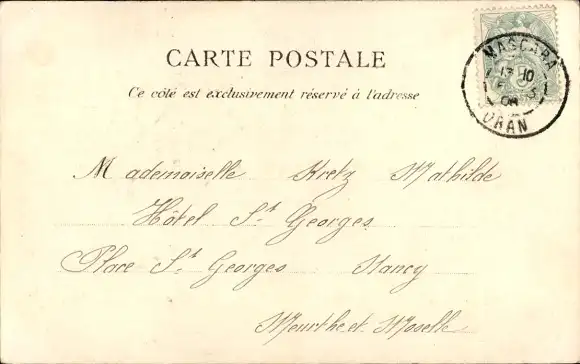 CARTE POSTALE
Ce côté est exclusivement réservé à l'adresse
MASCARA
13 10
ORAN
Mademoiselle Kretz Mathilde
Hôtel St Georges
Place St Georges Nancy
Meurthe et Moselle